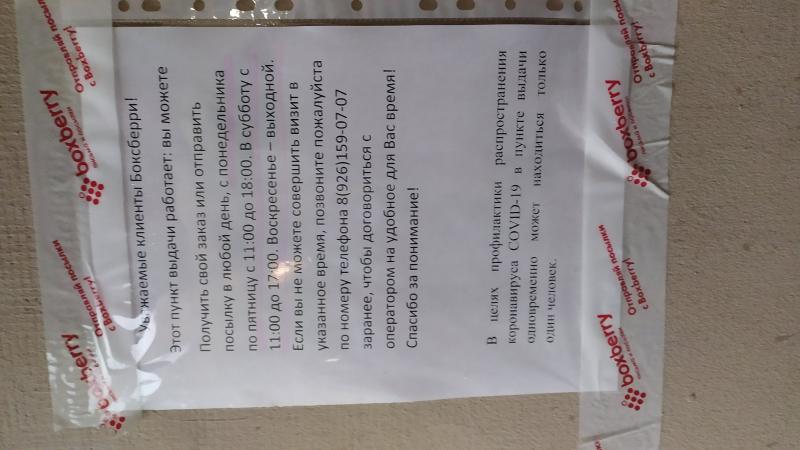 Уважаемые клиенты Боксберри!
Этот пункт выдачи работает: вы можете
Получить свой заказ или отправить
посылку в любой день, с понедельника
по пятницу с 11:00 до 18:00. В субботу с
11:00 до 17:00. Воскресенье – выходной.
Если вы не можете совершить визит в
указанное время, позвоните пожалуйста
по номеру телефона 8(926)159-07-07
заранее, чтобы договориться с
оператором на удобное для Вас время!
Спасибо за понимание!
В целях профилактики распространения
коронавируса COVID-19 в пункте выдачи
одновременно может находиться только
один человек.
boxberry
Отправляй посылки
с Boxberry!
boxberry
Отправляй посылки
с Boxberry!
boxberry
Отправляй посылки
с Boxberry!